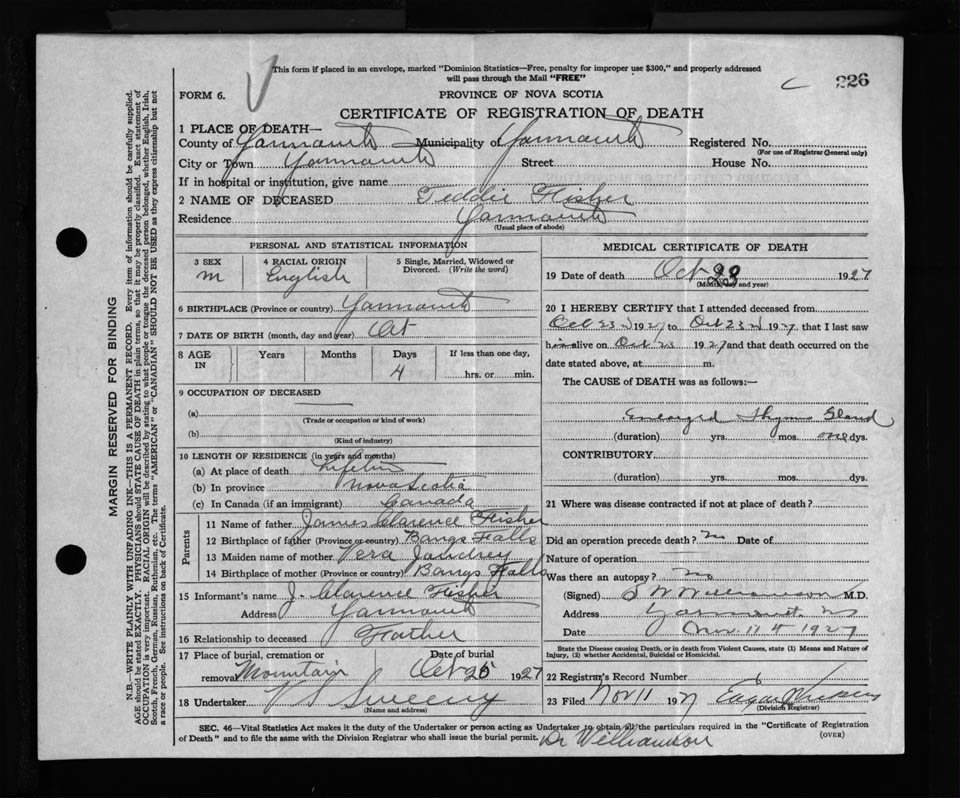 This form if placed in an envelope, marked "Dominion Statistics—Free, penalty for improper use $300," and properly addressed
will pass through the Mail "FREE"
226
FORM 6.
PROVINCE OF NOVA SCOTIA
CERTIFICATE OF REGISTRATION OF DEATH
1 PLACE OF DEATH—
County of Yarmouth Municipality of Yarmouth Registered No.
(For use of Registrar General only)
City or Town Yarmouth Street House No.
If in hospital or institution, give name
2 NAME OF DECEASED Teddie Fisher
Residence Yarmouth
(Usual place of abode)
PERSONAL AND STATISTICAL INFORMATION
3 SEX 4 RACIAL ORIGIN 5 Single, Married, Widowed or
Divorced. (Write the word)
m English
6 BIRTHPLACE (Province or country) Yarmouth
7 DATE OF BIRTH (month, day and year) Oct
8 AGE IN Years Months Days If less than one day,
4 hrs. or min.
9 OCCUPATION OF DECEASED
(a)
(Trade or occupation or kind of work)
(b)
(Kind of industry)
10 LENGTH OF RESIDENCE (in years and months)
(a) At place of death Lifetime
(b) In province Nova Scotia
(c) In Canada (if an immigrant) Canada
Parents
11 Name of father James Clarence Fisher
12 Birthplace of father (Province or country) Bangs Falls
13 Maiden name of mother Vera
14 Birthplace of mother (Province or country) Bangs Falls
15 Informant's name J. Clarence Fisher
Address Yarmouth
16 Relationship to deceased Father
17 Place of burial, cremation or Date of burial
removal Mountain Oct 25 1927
18 Undertaker V S Sweeny
(Name and address)
MEDICAL CERTIFICATE OF DEATH
19 Date of death Oct 23 1927
(Month, day and year)
20 I HEREBY CERTIFY that I attended deceased from
Oct 23 1927 to Oct 23 1927 that I last saw
him alive on Oct 23 1927 and that death occurred on the
date stated above, at m.
The CAUSE of DEATH was as follows:—
Enlarged Thymus Gland
(duration) yrs. mos. one dys.
CONTRIBUTORY
(duration) yrs. mos. dys.
21 Where was disease contracted if not at place of death?
Did an operation precede death? no Date of
Nature of operation
Was there an autopsy? no
(Signed) S W Williamson M.D.
Address Yarmouth
Date Nov. 11 1927
State the Disease causing Death, or in death from Violent Causes, state (1) Means and Nature of
Injury, (2) whether Accidental, Suicidal or Homicidal.
22 Registrar's Record Number
23 Filed Nov 11 1927 Edgar
(Division Registrar)
SEC. 46—Vital Statistics Act makes it the duty of the Undertaker or person acting as Undertaker to obtain all the particulars required in the "Certificate of Registration
of Death" and to file the same with the Division Registrar who shall issue the burial permit. (OVER)
Dr Williamson
MARGIN RESERVED FOR BINDING
N.B.—WRITE PLAINLY WITH UNFADING INK—THIS IS A PERMANENT RECORD. Every item of information should be carefully supplied.
AGE should be stated EXACTLY. PHYSICIANS should STATE CAUSE OF DEATH in plain terms, so that it may be properly classified. Exact statement of
OCCUPATION is very important. RACIAL ORIGIN will be described by stating to what people or tongue the deceased person belonged, whether English, Irish,
Scotch, French, German, Russian, Ruthenian, etc. The terms "AMERICAN" or "CANADIAN" SHOULD NOT BE USED as they express citizenship but not
a race or people. See instructions on back of Certificate.